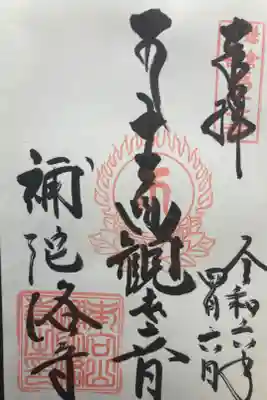 奉拝
令和六年
四月六日
十一面観世音
補陀洛寺